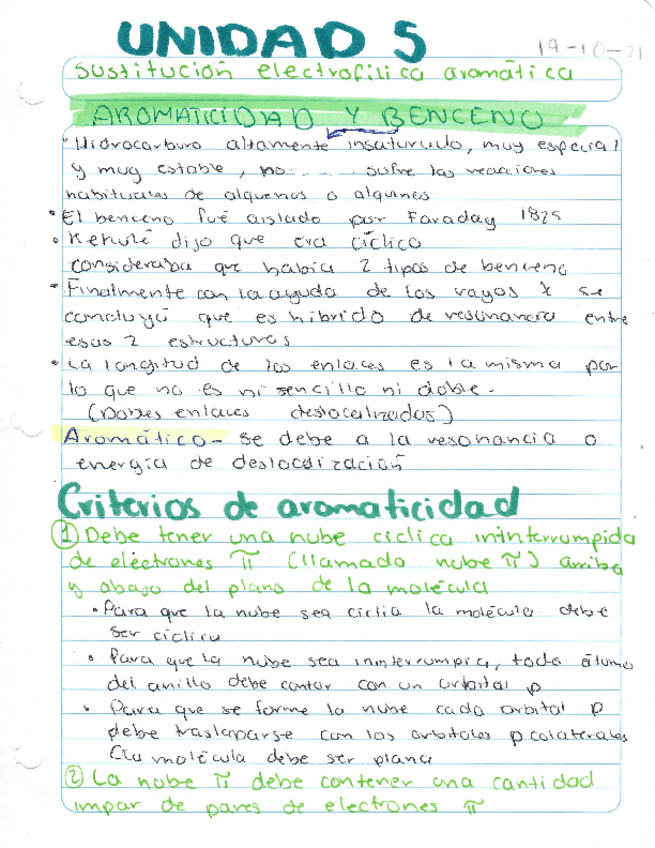 UNIDAD 5
19-10-21
sustitución electrofílica aromática
AROMATICIDAD Y BENCENO
• Hidrocarburo altamente insaturado, muy especial
y muy estable, no sufre las reacciones
habituales de alquenos o alquinos
• El benceno fué aislado por Faraday 1825
• Kekulé dijo que era cíclico
consideraba que había 2 tipos de benceno
• Finalmente con la ayuda de los rayos X se
concluyó que es híbrido de resonancia entre
esas 2 estructuras
• La longitud de los enlaces es la misma por
lo que no es ni sencillo ni doble.
(Dobles enlaces deslocalizados)
Aromático- se debe a la resonancia o
energía de deslocalización
Criterios de aromaticidad
① Debe tener una nube cíclica ininterrumpida
de eléctrones π (llamado nube π) arriba
y abajo del plano de la molécula
• Para que la nube sea ciclia la molécula debe
ser cíclica
• Para que la nube sea ininterrumpia, todo átomo
del anillo debe contar con un orbital p
• Para que se forme la nube cada orbital p
debe traslaparse con los orbitales p colaterales
(la molécula debe ser plana
② La nube π debe contener una cantidad
impar de pares de electrones π